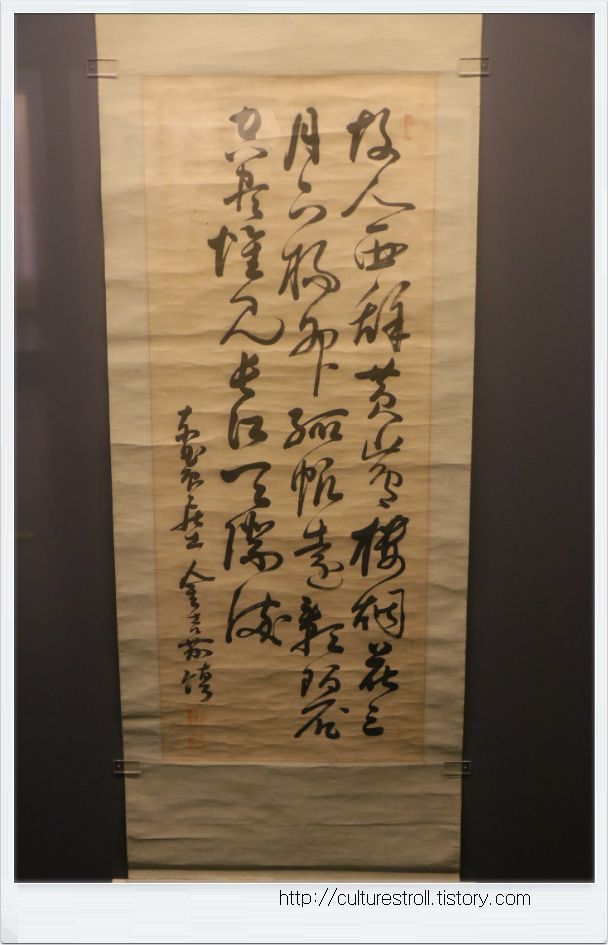 故人西辞黃鶴樓烟花三
月下楊州孤帆遠影碧
空盡惟見長江天際流
東農居士金嘉鎮
http://culturestroll.tistory.com